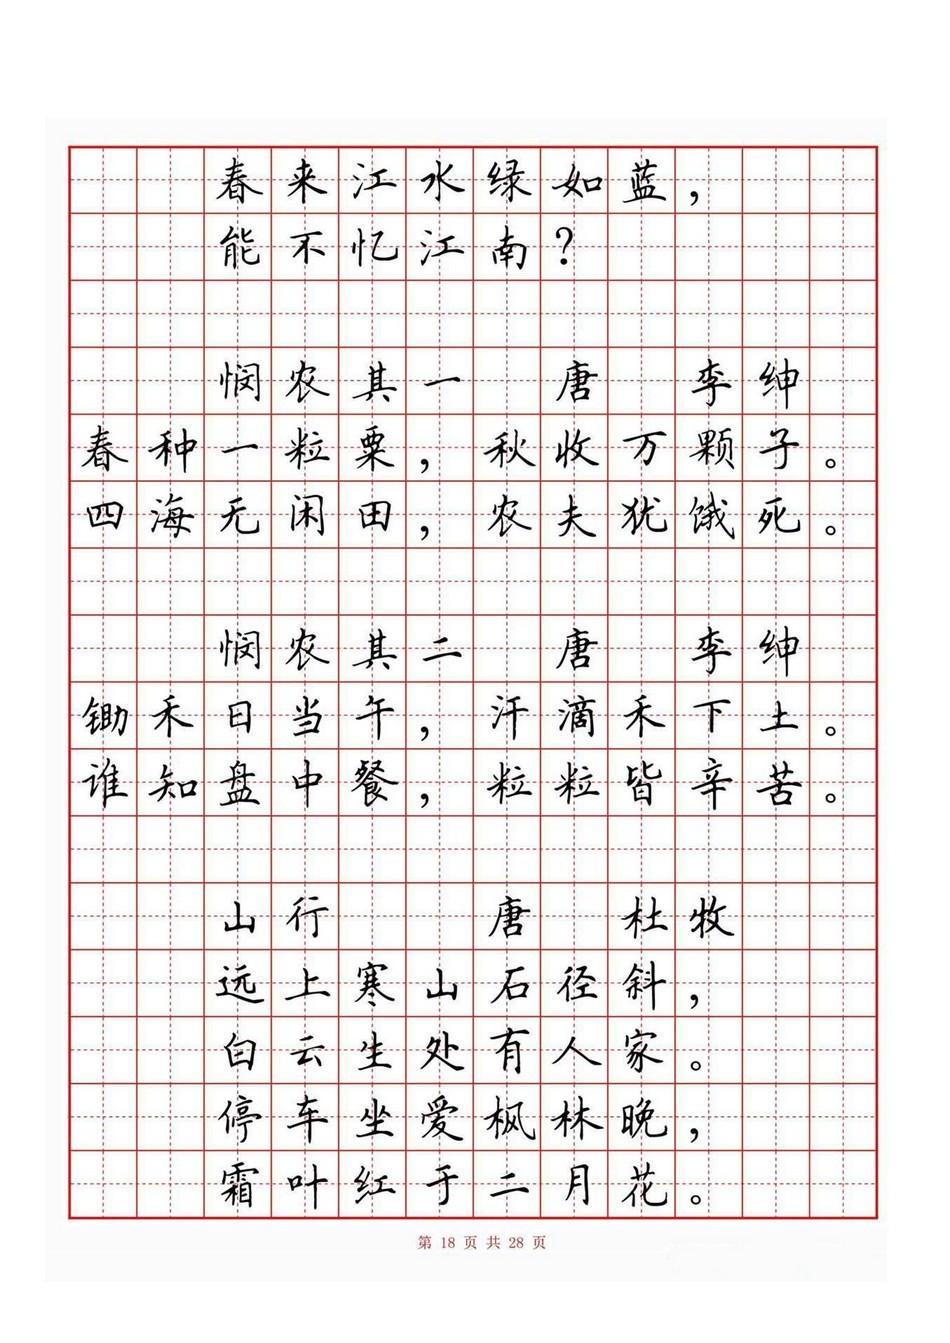 春来江水绿如蓝，
能不忆江南？
悯农其一 唐 李绅
春种一粒粟，秋收万颗子。
四海无闲田，农夫犹饿死。
悯农其二 唐 李绅
锄禾日当午，汗滴禾下土。
谁知盘中餐，粒粒皆辛苦。
山行 唐 杜牧
远上寒山石径斜，
白云生处有人家。
停车坐爱枫林晚，
霜叶红于二月花。
第 18 页 共 28 页